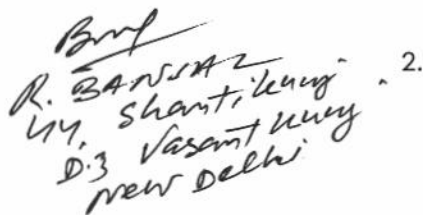 R. BANSAL
44, Shantikunj. 2.
D.3 Vasant Kunj
New Delhi